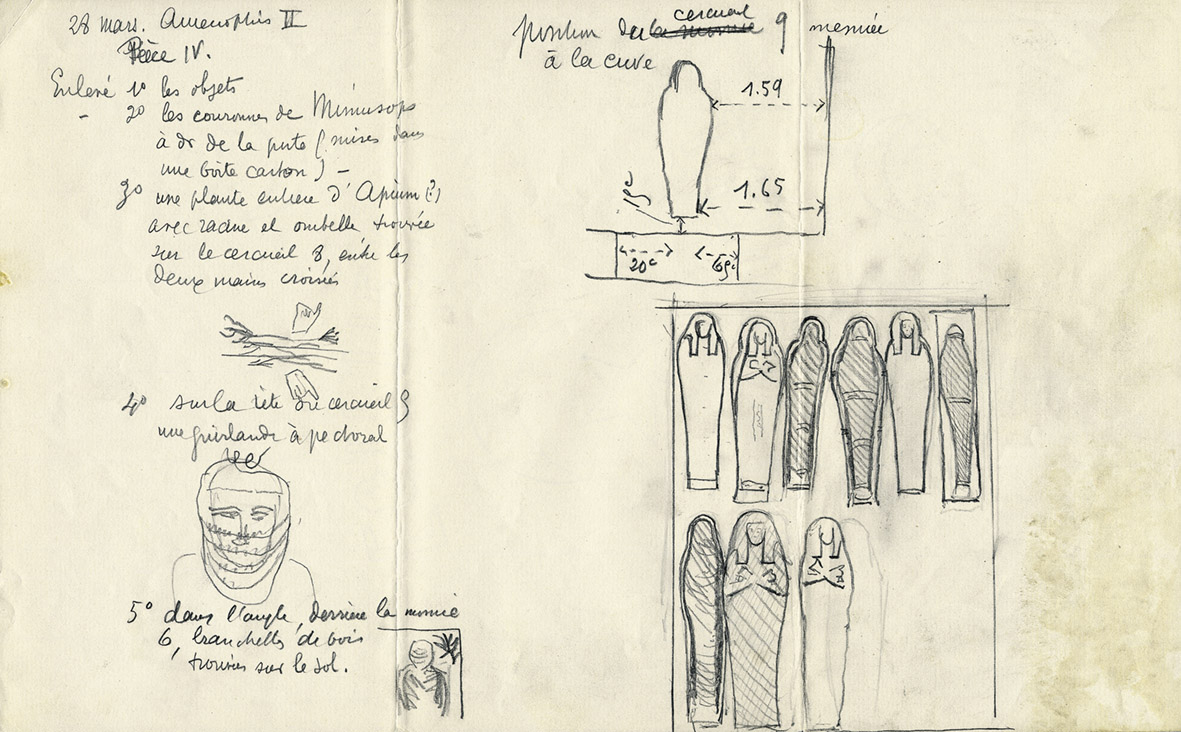 28 mars. Amenophis II
Pièce IV.
Enlevé 1° les objets
- 2° les couronnes de Mimusops
à dr de la porte (mises dans
une boîte carton) –
3° une plante entière d'Apium (?)
avec racine et ombelle trouvée
sur le cercueil 8, entre les
deux mains croisées
4° sur la tête du cercueil 9
une guirlande à pectoral
5° dans l'angle, derrière la momie
6, branchettes de bois
trouvées sur le sol.
position du cercueil 9 mesurée
à la cuve
1.59
1.65
19c
20c
69c